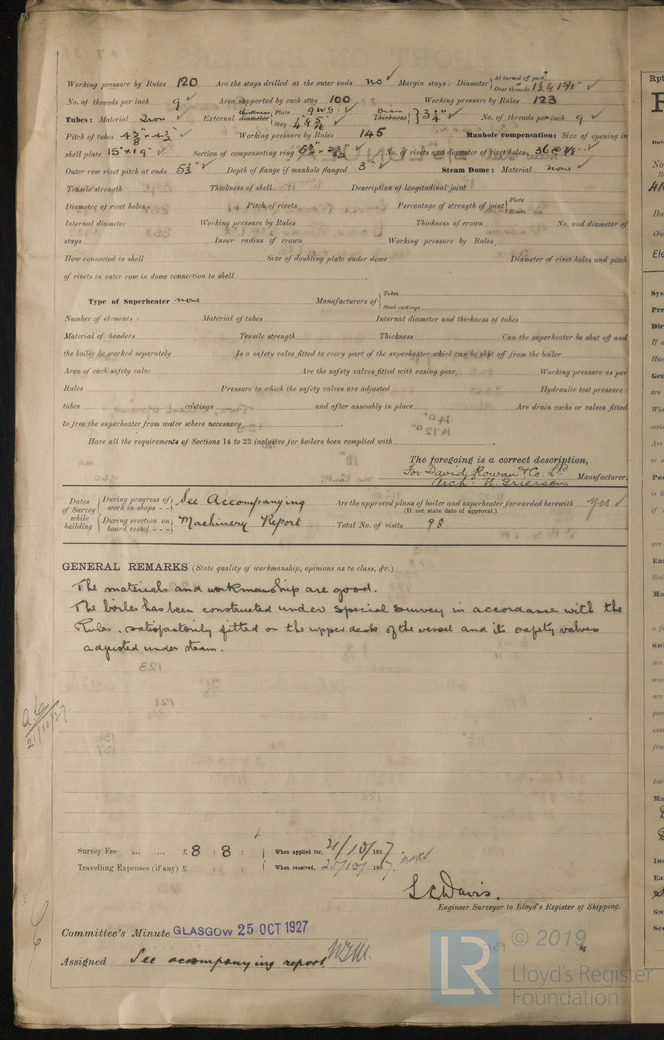 Working pressure by Rules 120 Are the stays drilled at the outer ends no Margin stays: Diameter { At turned off part, Over threads 1½ & 1⅝"
No. of threads per inch 9 Area supported by each stay 100 Working pressure by Rules 123
Tubes: Material Iron External diameter { Plain 9 WG Stay ¼ & 5/16 Thickness } 3¼" No. of threads per inch 9
Pitch of tubes 4⅜" × 4½" Working pressure by Rules 145 Manhole compensation: Size of opening in
shell plate 15" × 19" Section of compensating ring No. of rivets and diameter of rivet holes 36 @ ⅞"
Outer row rivet pitch at ends 5½" Depth of flange if manhole flanged 3" Steam Dome: Material none
Tensile strength Thickness of shell Description of longitudinal joint
Diameter of rivet holes Pitch of rivets Percentage of strength of joint { Plate Rivets
Internal diameter Working pressure by Rules Thickness of crown No. and diameter of
stays Inner radius of crown Working pressure by Rules
How connected to shell Size of doubling plate under dome Diameter of rivet holes and pitch
of rivets in outer row in dome connection to shell
Type of Superheater none Manufacturers of { Tubes Steel castings
Number of elements Material of tubes Internal diameter and thickness of tubes
Material of headers Tensile strength Thickness Can the superheater be shut off and
the boiler be worked separately Is a safety valve fitted to every part of the superheater which can be shut off from the boiler
Area of each safety valve Are the safety valves fitted with easing gear Working pressure as per
Rules Pressure to which the safety valves are adjusted Hydraulic test pressure:
tubes castings and after assembly in place Are drain cocks or valves fitted
to free the superheater from water where necessary
Have all the requirements of Sections 14 to 23 inclusive for boilers been complied with
The foregoing is a correct description,
For David Rowan & Co. Ltd
Arch. W. Grierson Manufacturer.
Dates of Survey while building { During progress of work in shops - - See Accompanying Are the approved plans of boiler and superheater forwarded herewith yes
(If not state date of approval.)
{ During erection on board vessel - - - Machinery Report Total No. of visits 98
GENERAL REMARKS (State quality of workmanship, opinions as to class, &c.)
The materials and workmanship are good.
The boiler has been constructed under special survey in accordance with the
Rules, satisfactorily fitted on the upper deck of the vessel and its safety valves
adjusted under steam.
21/10/27
Survey Fee ... ... £ 8 : 8 : When applied for, 21/10/1927
Travelling Expenses (if any) £ : : When received, 25/10/1927
S C Davis.
Engineer Surveyor to Lloyd's Register of Shipping.
Committee's Minute GLASGOW 25 OCT 1927
Assigned See accompanying report
LR © 2019
Lloyd's Register
Foundation